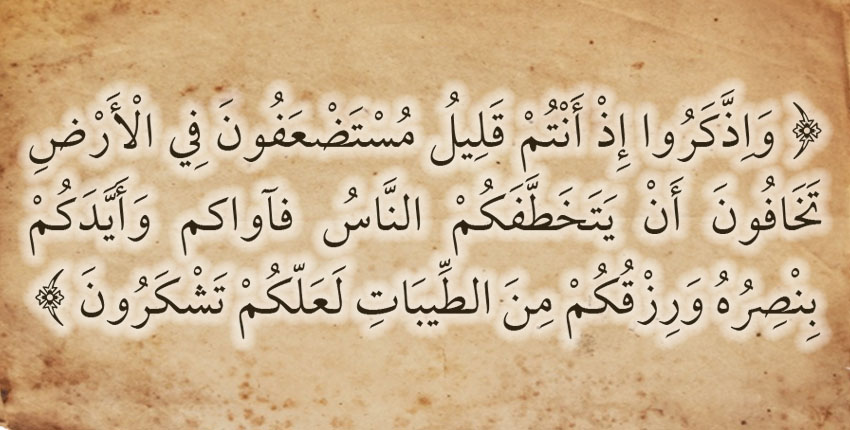 ﴿ وَاِذَّكَرُوا إِذْ أَنْتُمْ قَلِيلُ مُسْتَضْعَفُونَ فِي الْأَرْضِ
تَخَافُونَ أَنْ يَتَخَطَّفَكُمْ النَّاسُ فآواكم وَأَيَّدَكُمْ
بِنْصِرُهُ وَرِزْقُكُمْ مِنَ الطِّيبَاتِ لَعَلّكُمْ تَشْكَرُونَ ﴾